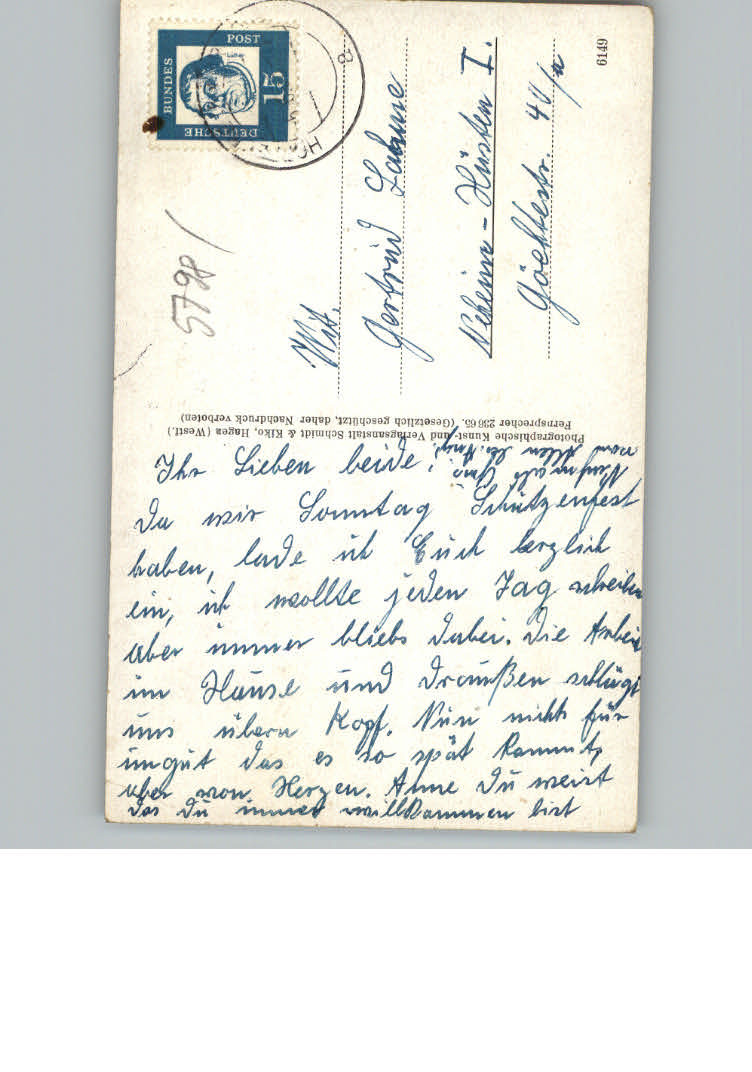 Ihr Lieben beide!
Da wir Sonntag Schützenfest
haben, lade ich Euch herzlich
ein, ich wollte jeden Tag schreiben
aber immer bliebs dabei. Die Arbeit
im Hause und draußen schlägt
uns übern Kopf. Nun nichts für
ungut das es so spät kommt,
aber von Herzen. Anne Du weist
das Du immer willkommen bist
von Allen
Photographische Kunst- und Verlagsanstalt Schmidt & Kiko, Hagen (Westf.),
Fernsprecher 23665. (Gesetzlich geschützt, daher Nachdruck verboten)
5798/
DEUTSCHE
BUNDES
POST
15
Wit.
Gertrud
Neheim-Hüsten I.
Goethestr. 40/a
6149